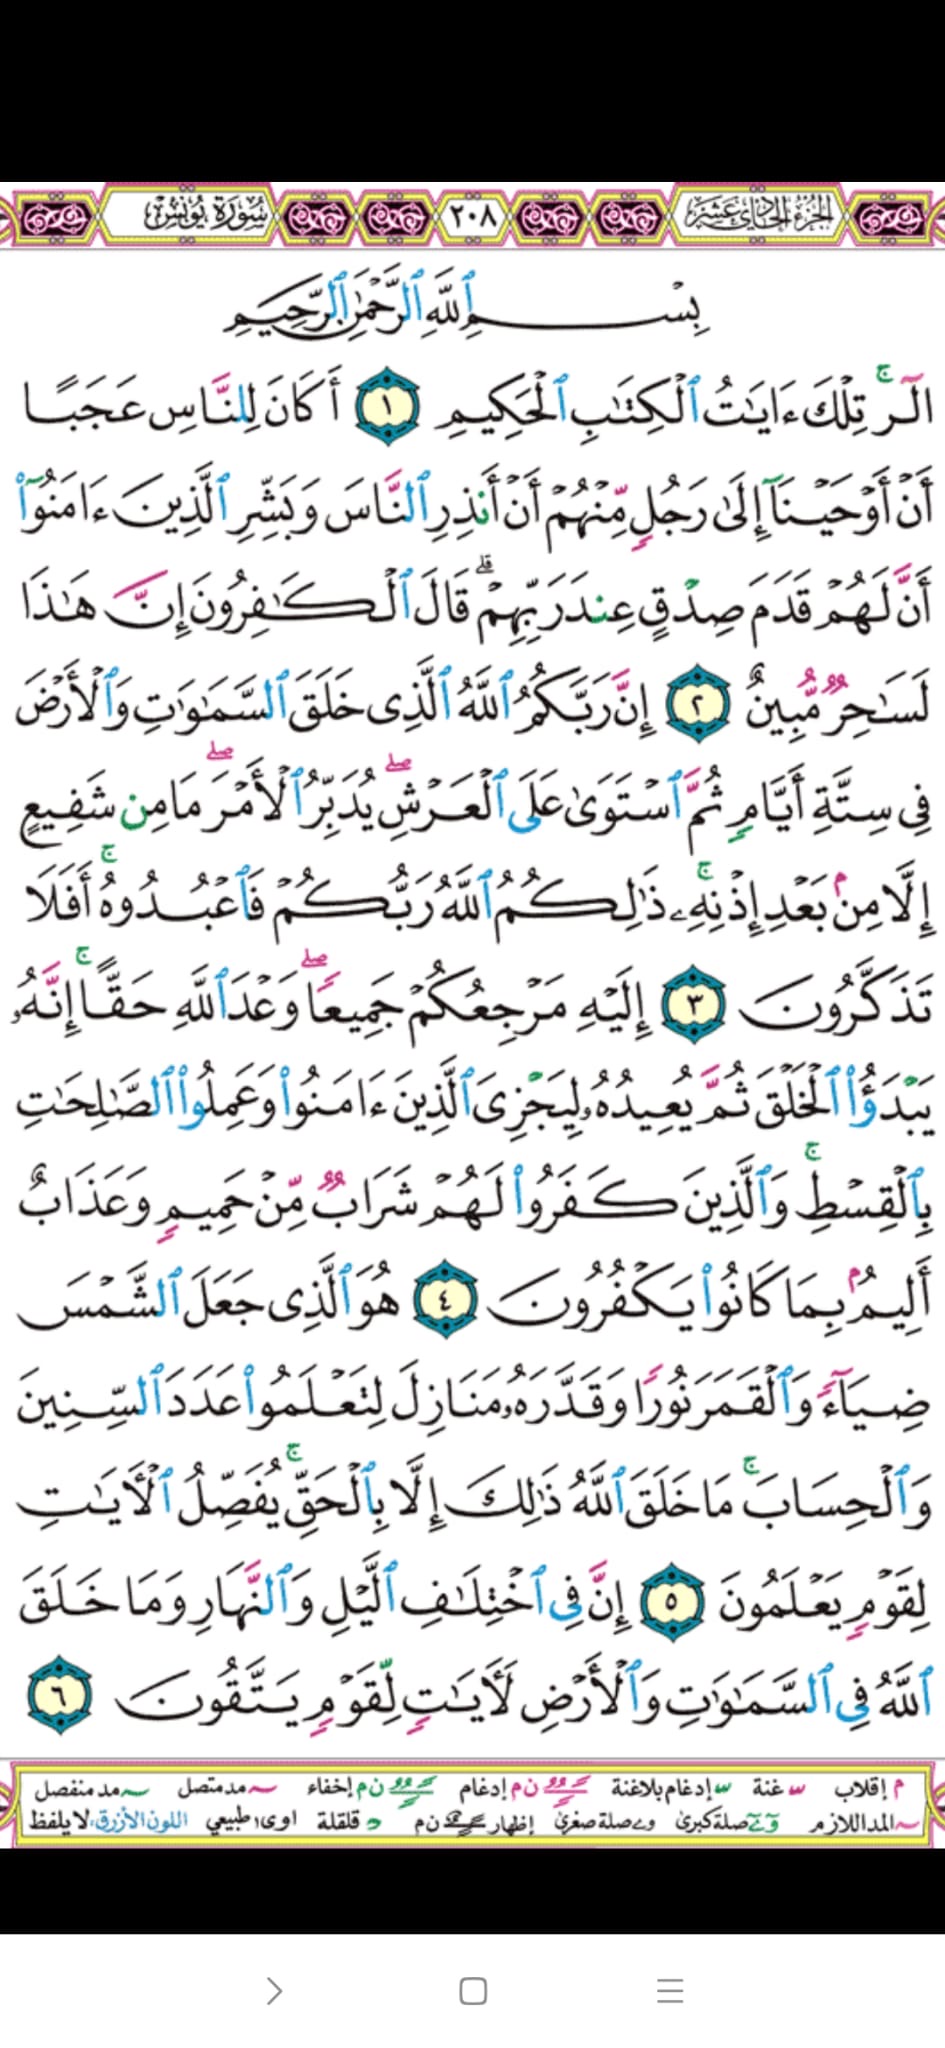 الجزء الحادي عشر ٢٠٨ سورة يونس
بِسْمِ ٱللَّهِ ٱلرَّحْمَٰنِ ٱلرَّحِيمِ
الٓرۚ تِلْكَ ءَايَٰتُ ٱلْكِتَٰبِ ٱلْحَكِيمِ ١ أَكَانَ لِلنَّاسِ عَجَبًا
أَنْ أَوْحَيْنَآ إِلَىٰ رَجُلٍ مِّنْهُمْ أَنْ أَنذِرِ ٱلنَّاسَ وَبَشِّرِ ٱلَّذِينَ ءَامَنُوٓا۟
أَنَّ لَهُمْ قَدَمَ صِدْقٍ عِندَ رَبِّهِمْۗ قَالَ ٱلْكَٰفِرُونَ إِنَّ هَٰذَا
لَسَٰحِرٌ مُّبِينٌ ٢ إِنَّ رَبَّكُمُ ٱللَّهُ ٱلَّذِى خَلَقَ ٱلسَّمَٰوَٰتِ وَٱلْأَرْضَ
فِى سِتَّةِ أَيَّامٍ ثُمَّ ٱسْتَوَىٰ عَلَى ٱلْعَرْشِۖ يُدَبِّرُ ٱلْأَمْرَۖ مَا مِن شَفِيعٍ
إِلَّا مِنۢ بَعْدِ إِذْنِهِۦۚ ذَٰلِكُمُ ٱللَّهُ رَبُّكُمْ فَٱعْبُدُوهُۚ أَفَلَا
تَذَكَّرُونَ ٣ إِلَيْهِ مَرْجِعُكُمْ جَمِيعًاۖ وَعْدَ ٱللَّهِ حَقًّاۚ إِنَّهُۥ
يَبْدَؤُا۟ ٱلْخَلْقَ ثُمَّ يُعِيدُهُۥ لِيَجْزِىَ ٱلَّذِينَ ءَامَنُوا۟ وَعَمِلُوا۟ ٱلصَّٰلِحَٰتِ
بِٱلْقِسْطِۚ وَٱلَّذِينَ كَفَرُوا۟ لَهُمْ شَرَابٌ مِّنْ حَمِيمٍ وَعَذَابٌ
أَلِيمٌۢ بِمَا كَانُوا۟ يَكْفُرُونَ ٤ هُوَ ٱلَّذِى جَعَلَ ٱلشَّمْسَ
ضِيَآءً وَٱلْقَمَرَ نُورًا وَقَدَّرَهُۥ مَنَازِلَ لِتَعْلَمُوا۟ عَدَدَ ٱلسِّنِينَ
وَٱلْحِسَابَۚ مَا خَلَقَ ٱللَّهُ ذَٰلِكَ إِلَّا بِٱلْحَقِّۚ يُفَصِّلُ ٱلْءَايَٰتِ
لِقَوْمٍ يَعْلَمُونَ ٥ إِنَّ فِى ٱخْتِلَٰفِ ٱلَّيْلِ وَٱلنَّهَارِ وَمَا خَلَقَ
ٱللَّهُ فِى ٱلسَّمَٰوَٰتِ وَٱلْأَرْضِ لَءَايَٰتٍ لِّقَوْمٍ يَتَّقُونَ ٦
م إقلاب غنة إدغام بلا غنة ن م إدغام ن م إخفاء مد متصل مد منفصل
المد اللازم صلة كبرى صلة صغرى إظهار ن م قلقلة اوى طبيعي اللون الأزرق، لا يلفظ